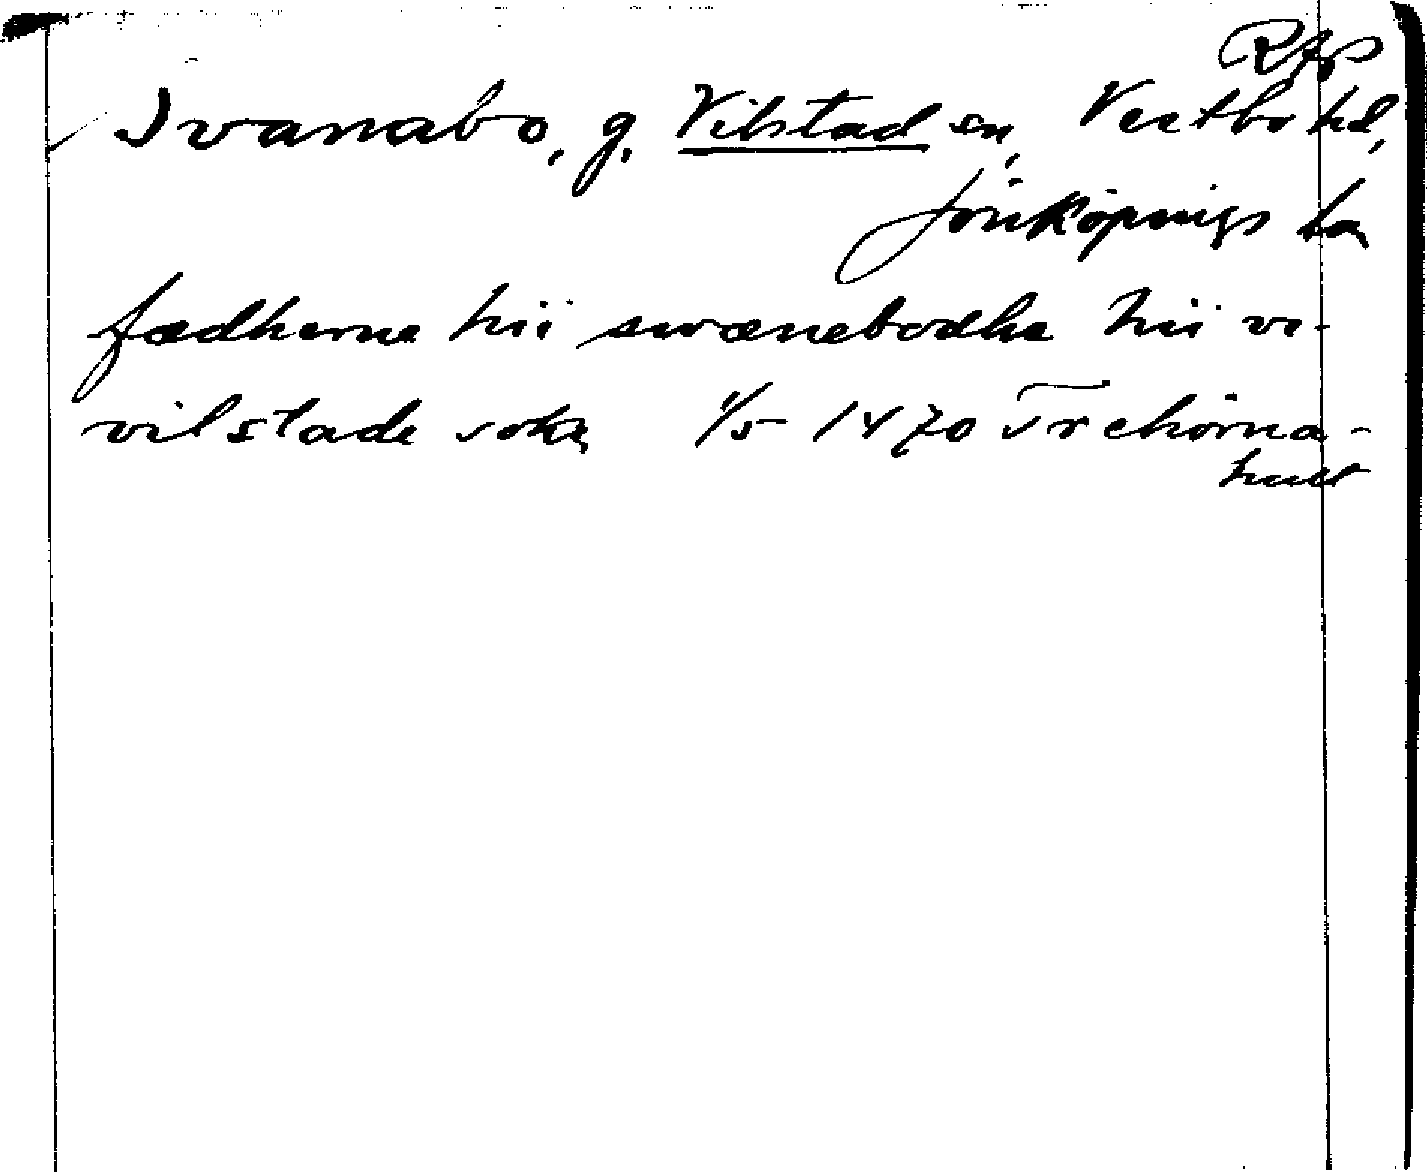 RAP
Svanabo, g. Vilstad sn, Vestbo hd,
Jönköpings län
fædherne hii swænebodha hii vi-
vilstade sokn 1/5 1470 Trehörna-
hult